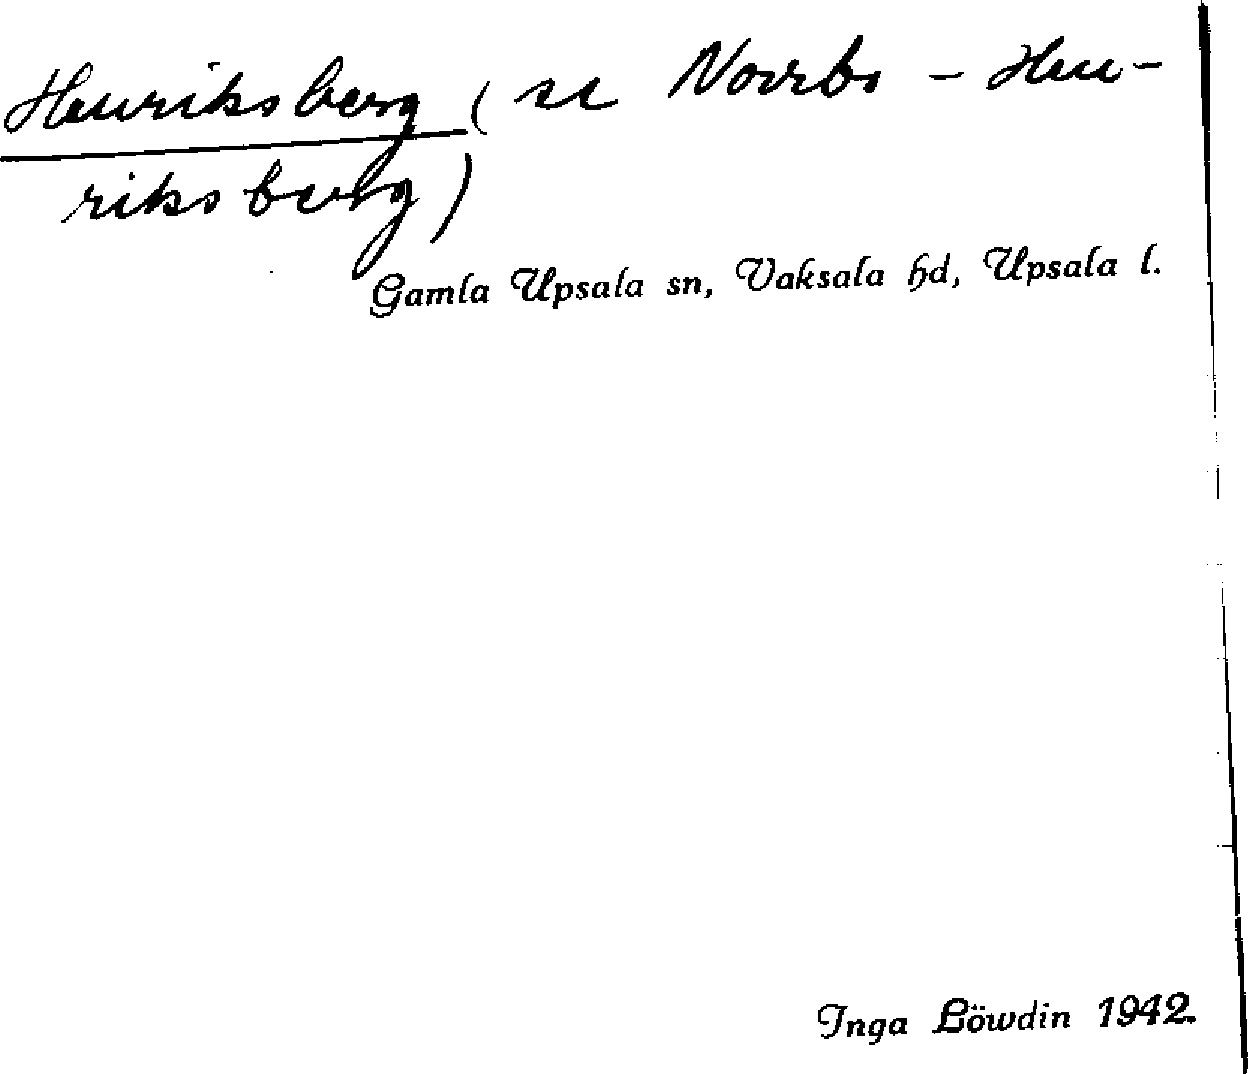 Henriksberg (se Norrbo - Hen-
riksberg)
Gamla Upsala sn, Vaksala hd, Upsala l.
Inga Löwdin 1942.